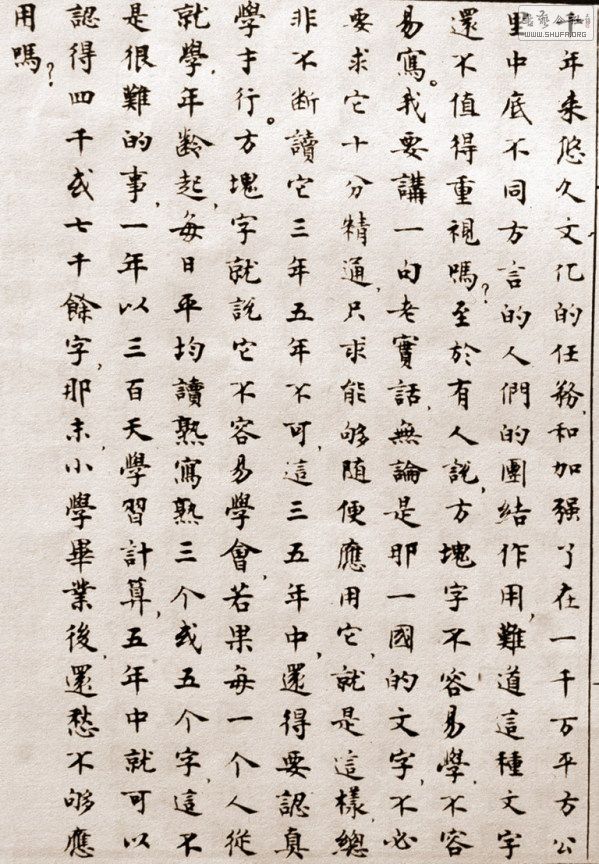 千年来悠久文化的任務,和加强了在一千万平方公
里中底不同方言的人們的團結作用,難道這種文字
還不值得重視嗎?至於有人説,方塊字不容易學,不容
易寫。我要講一句老實話,無論是那一國的文字,不必
要求它十分精通,只求能够随便應用它,就是這樣,總
非不断讀它三年五年不可,這三五年中,還得要認真
學才行。方塊字就説它不容易學會,若果每一个人從
就學年齡起,每日平均讀熟寫熟三个或五个字,這不
是很難的事,一年以三百天學習計算,五年中就可以
認得四千或七千餘字,那末,小學畢業後,還愁不够應
用嗎?
WWW.SHUFA.ORG